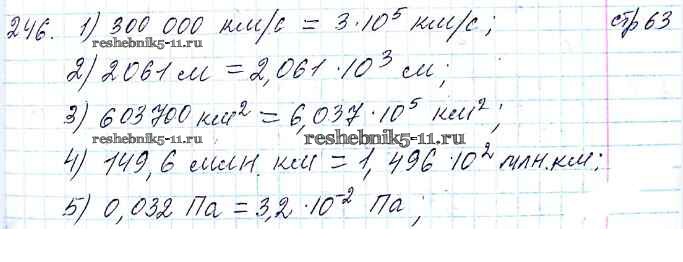 246. 1) 300 000 км/с = 3·10⁵ км/с; стр 63
reshebnik5-11.ru
2) 2061 м = 2,061·10³ м;
3) 603700 км² = 6,037·10⁵ км²;
reshebnik5-11.ru reshebnik5-11.ru
4) 149,6 млн. км = 1,496·10² млн.км;
5) 0,032 Па = 3,2·10⁻² Па;